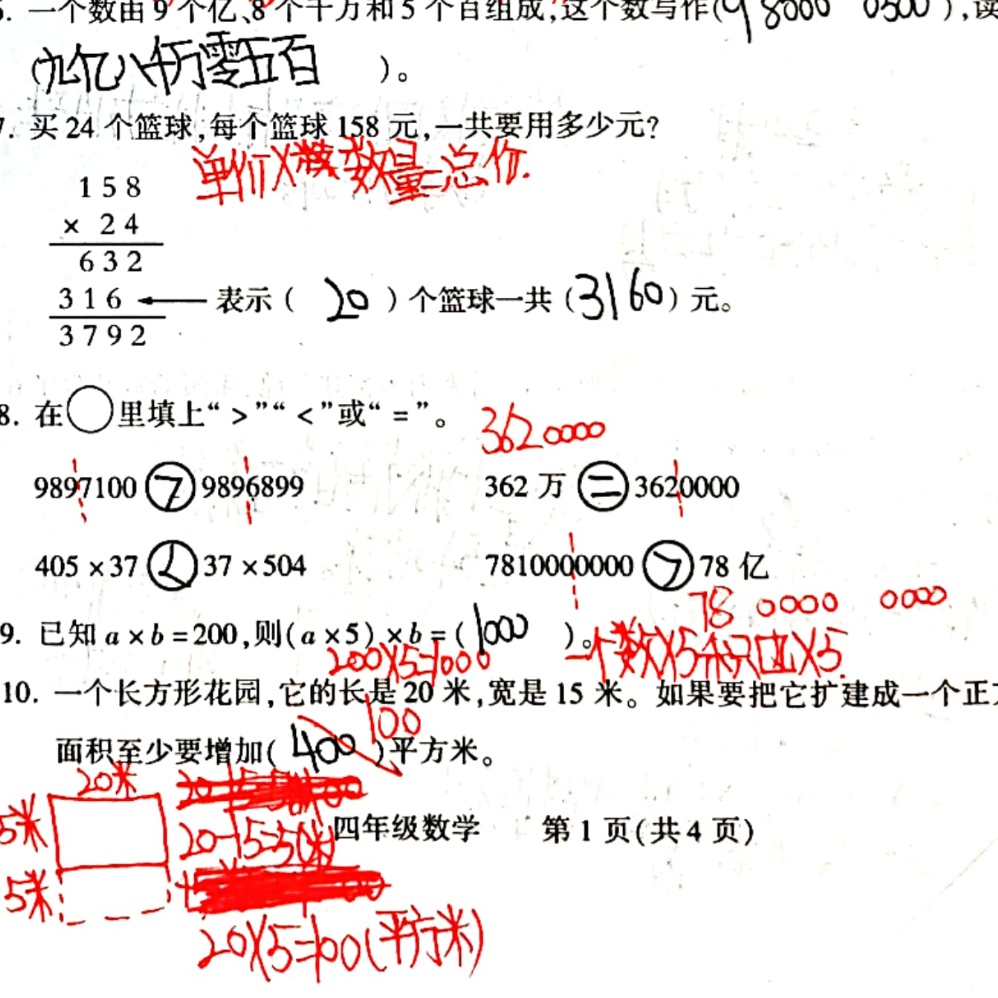 6. 一个数由9个亿、8个千万和5个百组成,这个数写作(98000 0500),读
(九亿八千万零五百 )。
7. 买24个篮球,每个篮球158元,一共要用多少元?
单价×数量=总价.
158
× 24
632
316 ← 表示( 20 )个篮球一共(3160)元。
3792
8. 在○里填上“>”“<”或“=”。
3620000
9897100 > 9896899 362万 = 3620000
405×37 < 37×504 7810000000 > 78亿
78 0000 0000
9. 已知a×b=200,则(a×5)×b=(1000 )。
200×5=1000 一个数×5 积也×5.
10. 一个长方形花园,它的长是20米,宽是15米。如果要把它扩建成一个正方
100
面积至少要增加( 400 )平方米。
20米
5米 20-15=5(米)
四年级数学 第1页(共4页)
5米
20×5=100(平方米)